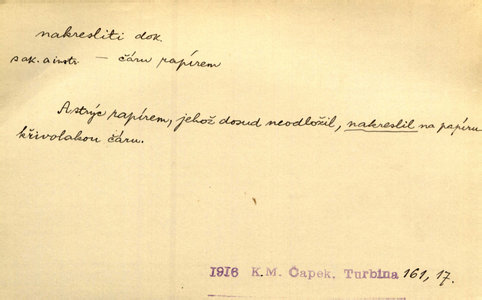 nakresliti dok.
s ak. a instr. — čáru papírem
A strýc papírem, jehož dosud neodložil, nakreslil na papíru
křivolakou čáru.
1916 K.M. Čapek, Turbina 161, 17.